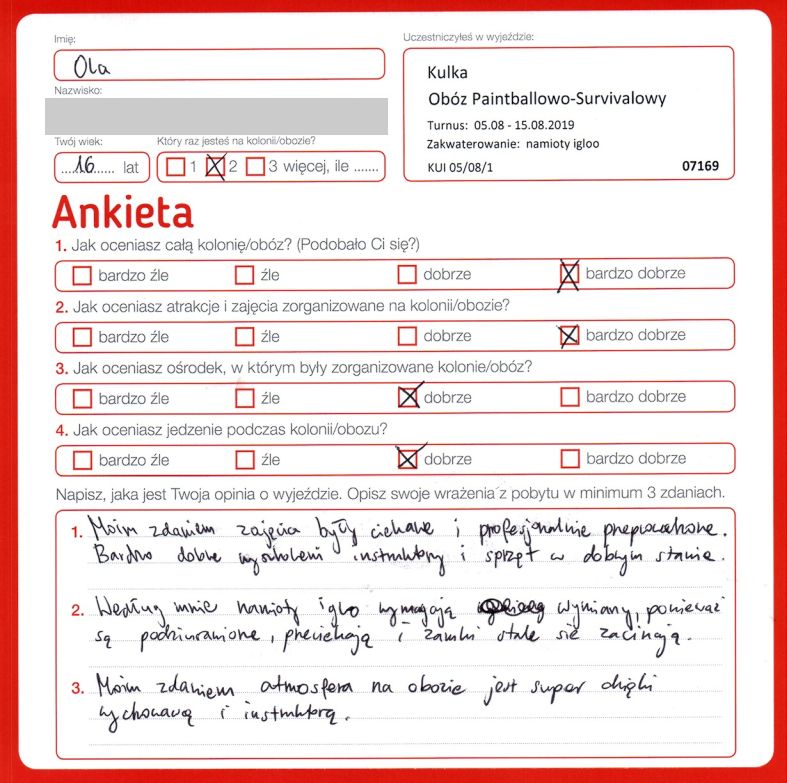 Imię:
Ola
Nazwisko:
Twój wiek:
16 lat
Który raz jesteś na kolonii/obozie?
1 2 3 więcej, ile .......
Uczestniczyłeś w wyjeździe:
Kulka
Obóz Paintballowo-Survivalowy
Turnus: 05.08 - 15.08.2019
Zakwaterowanie: namioty igloo
KUI 05/08/1 07169
Ankieta
1. Jak oceniasz całą kolonię/obóz? (Podobało Ci się?)
bardzo źle źle dobrze bardzo dobrze
2. Jak oceniasz atrakcje i zajęcia zorganizowane na kolonii/obozie?
bardzo źle źle dobrze bardzo dobrze
3. Jak oceniasz ośrodek, w którym były zorganizowane kolonie/obóz?
bardzo źle źle dobrze bardzo dobrze
4. Jak oceniasz jedzenie podczas kolonii/obozu?
bardzo źle źle dobrze bardzo dobrze
Napisz, jaka jest Twoja opinia o wyjeździe. Opisz swoje wrażenia z pobytu w minimum 3 zdaniach.
1. Moim zdaniem zajęcia były ciekawe i profesjonalnie przeprowadzone.
Bardzo dobrze wyszkoleni instruktorzy i sprzęt w dobrym stanie.
2. Według mnie namioty igloo wymagają wymiany, ponieważ
są podziurawione, przeciekają i zamki stale się zacinają.
3. Moim zdaniem atmosfera na obozie jest super dzięki
wychowawcą i instruktorą.